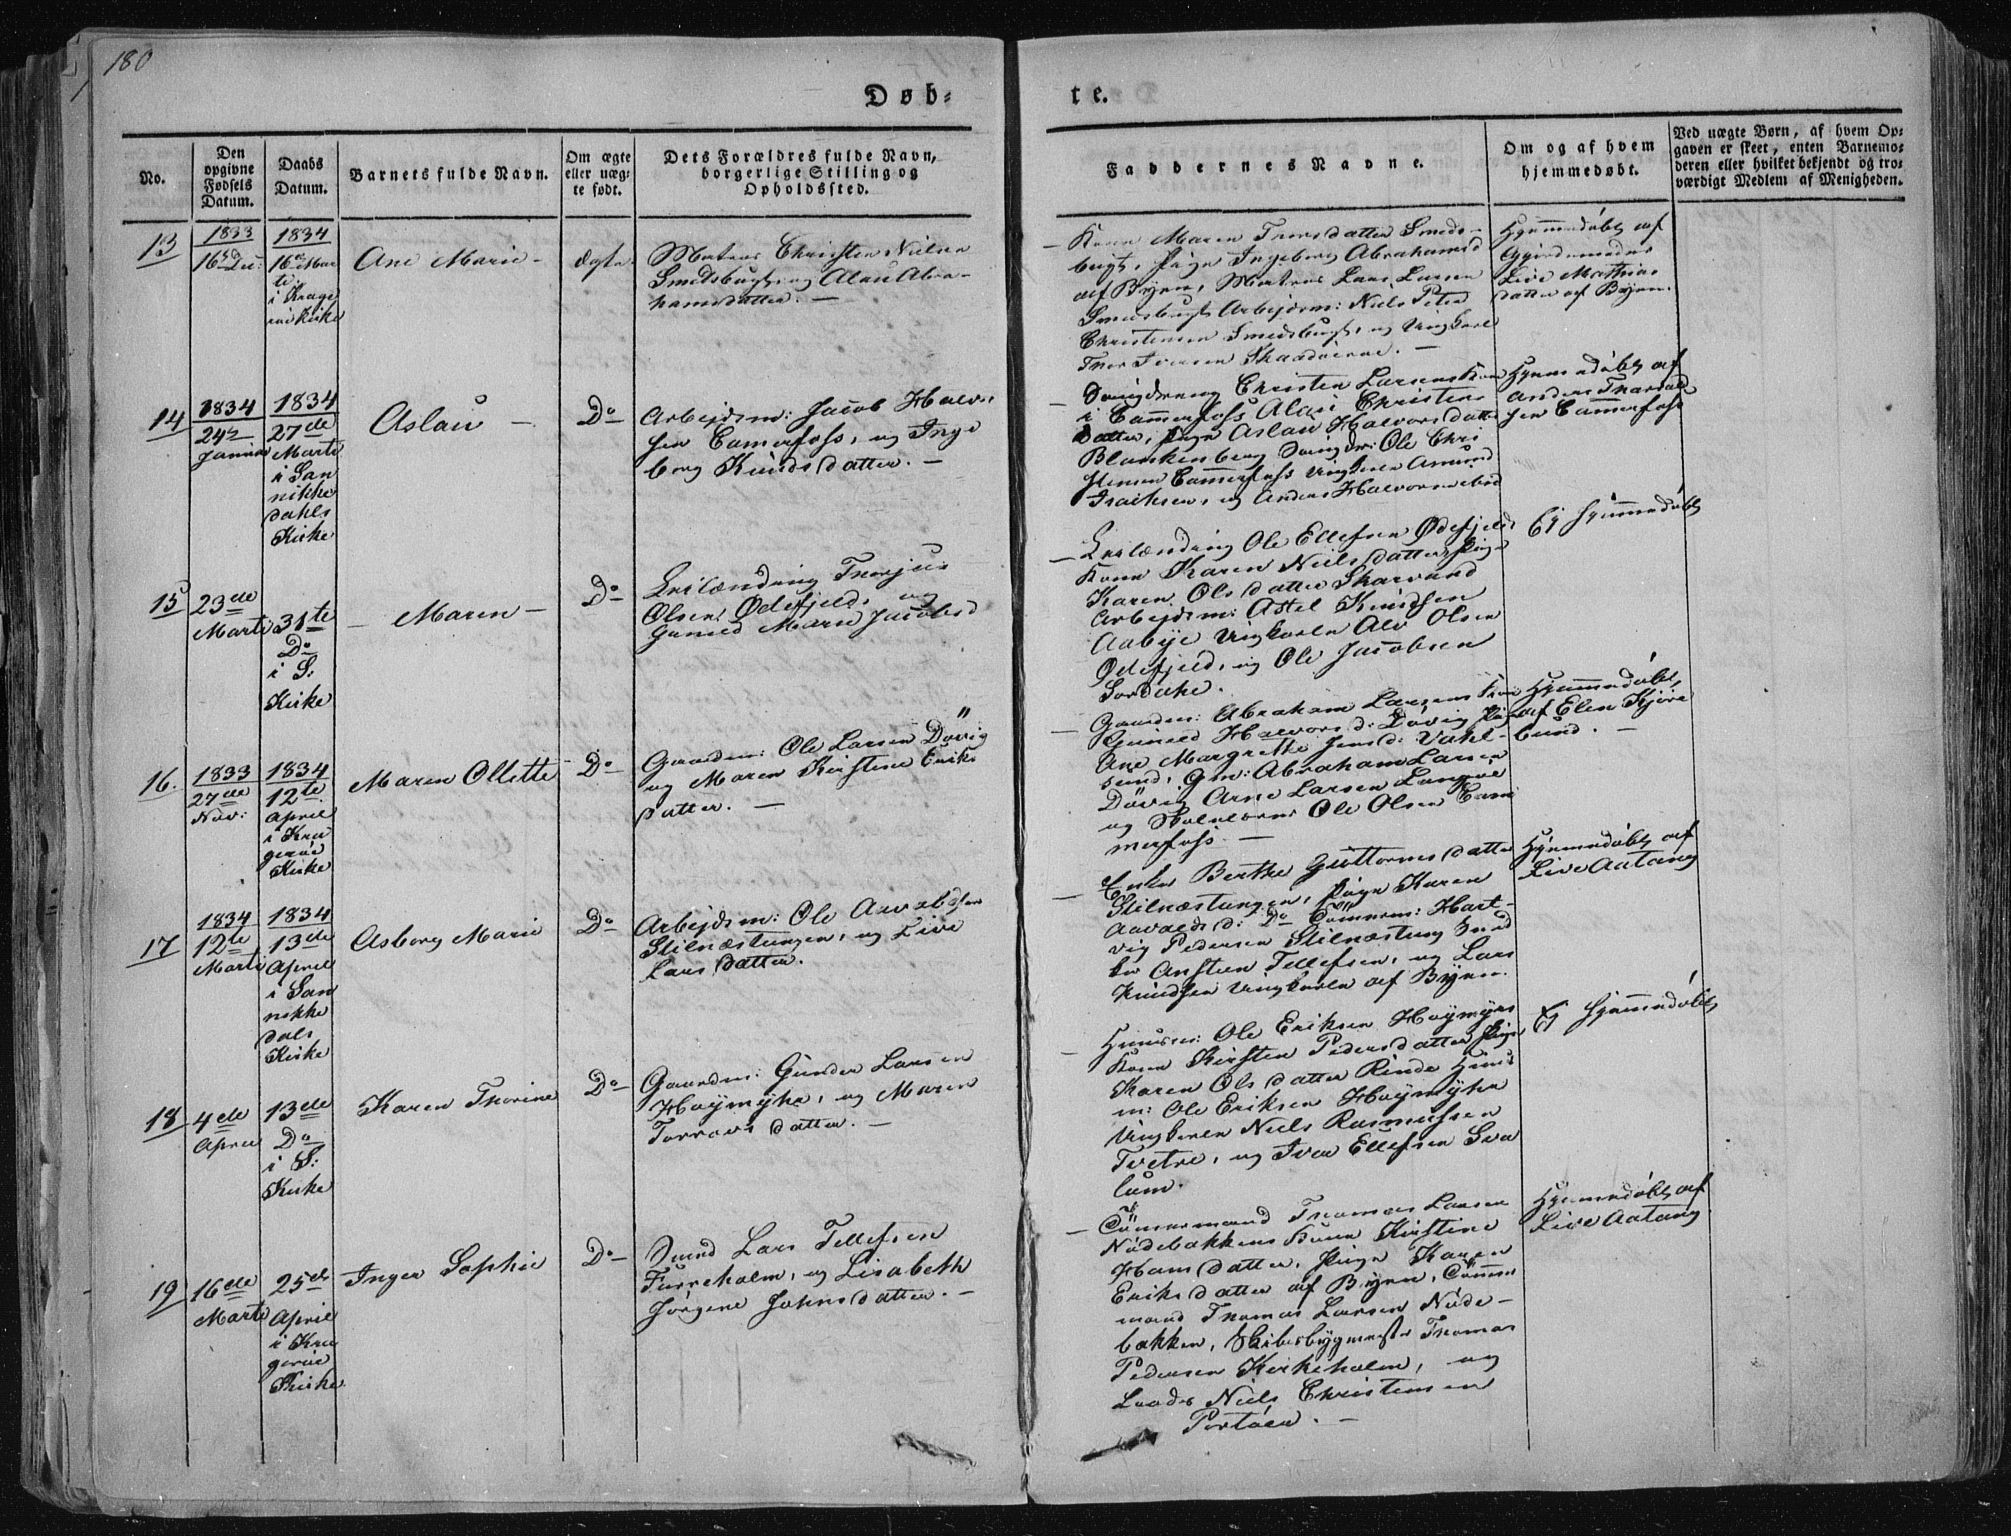 180
Døb-
te.
No.
Den
opgivne
Fødsels
Datum.
Daabs
Datum.
Barnets fulde Navn.
Om ægte
eller uæg-
te født.
Dets Forældres fulde Navn,
borgerlige Stilling og
Opholdssted.
Faddernes Navne.
Om og af hvem
hjemmedøbt.
Ved uægte Børn, af hvem Op-
gaven er skeet, enten Barnemo-
deren eller hvilket bekjendt og tro-
værdigt Medlem af Menigheden.
13
1833
1834
Ane Marie -
Ægte
Matros Christen Nielsen
Smedsbugt, og Alau Abra-
hamsdatter. -
Kone Maren Thorsdatter Smeds-
bugt, Pige Ingeborg Abrahamsd
af Byen, Matros Lars Larsen
Smedsbugt Arbejdsm: Niels Peter
Christensen Smedsbugt, og Ungkarl
Hjemmedøbt af
Live Mathias
datter af Byen.
14
1834
24de
Januar
1834
27de
Marti
i San
nikke
dahls
Kirke
Aslau -
Do
Arbejdsm: Jacob Halvor
sen Tamerfoss, og Inge
borg Knudsdatter. -
Christen Larsens Kone
i Tammerfoss Alau Christens
datter, Pige Aslau Halvorsdatter
Blankenberg Ole Chri
stensen Tammerfoss Ungkarle Amund
Isaksen, og Anders Halvorsen
Hjemmedøbt af
Anders Thorvald
sen Tamerfoss
15
23de
Marti
31te
Do
i S:
Kirke
- Maren -
Do
Leilænding Thorjus
Olsen Ødefjeld, og
Gunild Marie Jacobsd
Leilænding Ole Ellefsen Ødefjelds
Kone Karen Nielsdatter, Pige
Karen Olsdatter Skarvand
Arbejdsm: Aslel Knudsen
Aabye Ungkarle Alv Olsen
Ødefjeld, og Ole Jacobsen
Ej hjemmedøbt
16.
1833
27de
Nov:
1834
12te
April
i Kra
gerøe
Kirke
Maren Ollette
Do
Gaardm: Ole Larsen Døvig
og Maren Kirstine Eriks
datter. -
Gaardm: Abraham Larsens Kone
Gunild Halvorsd: Døvig Pige
Ane Margrethe Jensd: Vahl-
sund, Gm: Abraham Larsen
Døvig Arne Larsen
og Ole Olsen Tam
merfoss -
Hjemmedøbt
af Elen Kjøre
bund. -
17
1834
12te
Marti
1834
13de
April
i San
nikke
dals
Kirke
Asborg Marie
Do
Arbejdsm: Ole Aavaldsen
Stilnæstangen, og Live
Larsdatter.
Enke Berthe Guttormsdatter
Stilnæstangen, Pige Karen
Aavaldsd: Do Tømmerm: Hart-
vig Pedersen Stilnæstang
Ansteen Tellefsen, og Lars
Knudsen Ungkarle af Byen.
Hjemmedøbt af
Live Aatang
18
4de
April
13de
Do
i S:
Kirke
Karen Thorine
Do
Gaardm: Gunder Larsen
Høymyhr, og Maren
Torrowsdatter. -
Huusm: Ole Eriksen Høymyrs
Kone Kirsten Pedersdatter Pige
Karen Olsdatter Rinde Huus
m: Ole Eriksen Høymyhr
Ungkarle Niels Rasmussen
Tvetre, og Iver Ellefsen Sva
lum.
Ej hjemmedøbt
19
16de
Marti
25de
April
i Kra
gerøe
Kirke
Inger Sophie
Do
Smed Lars Tellefsen
Furreholm, og Lisabeth
Jørgine Johnsdatter. -
Tømmermand Thomas Larsen
Nødebakkens Kone Kirstine
Hansdatter, Pige Karen
Eriksdatter af Byen, Tømmer
mand Thomas Larsen Nøde-
bakken, Skibsbygmester Thomas
Pedersen Kirkeholm, og
Niels Christensen
Portøen. -
Hjemmedøbt af
Live Aatang